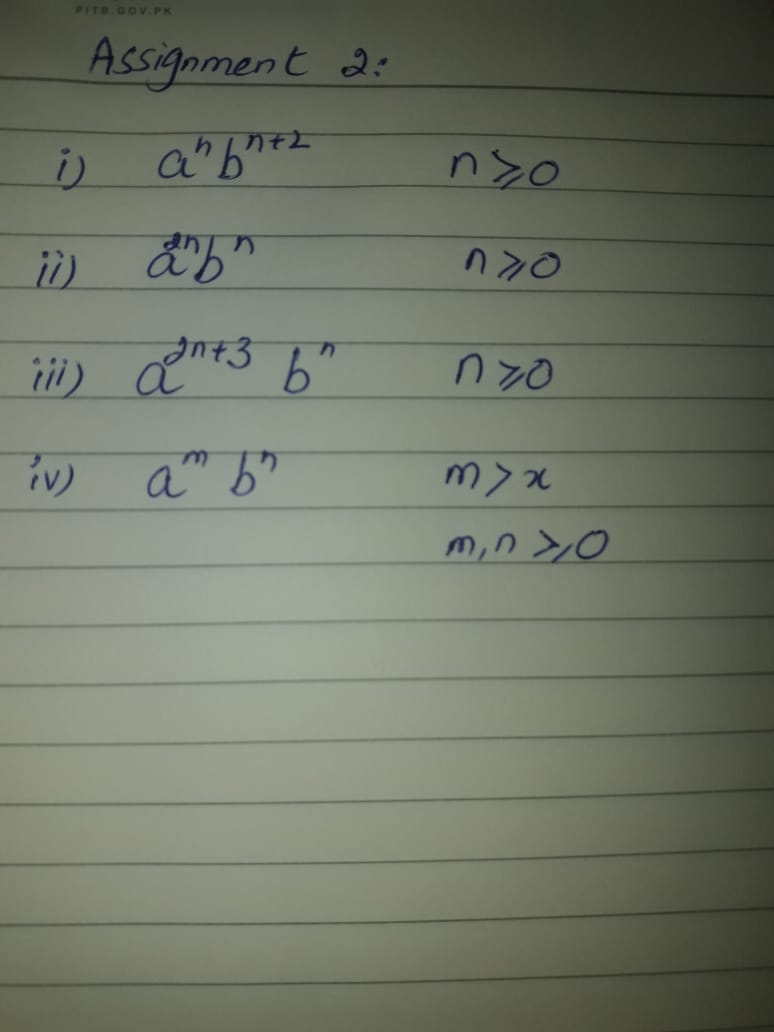 PITB.GOV.PK
Assignment 2:
i) aⁿbⁿ⁺² n ⩾ 0
ii) a²ⁿbⁿ n ⩾ 0
iii) a²ⁿ⁺³ bⁿ n ⩾ 0
iv) aᵐ bⁿ m > x
m, n ⩾ 0